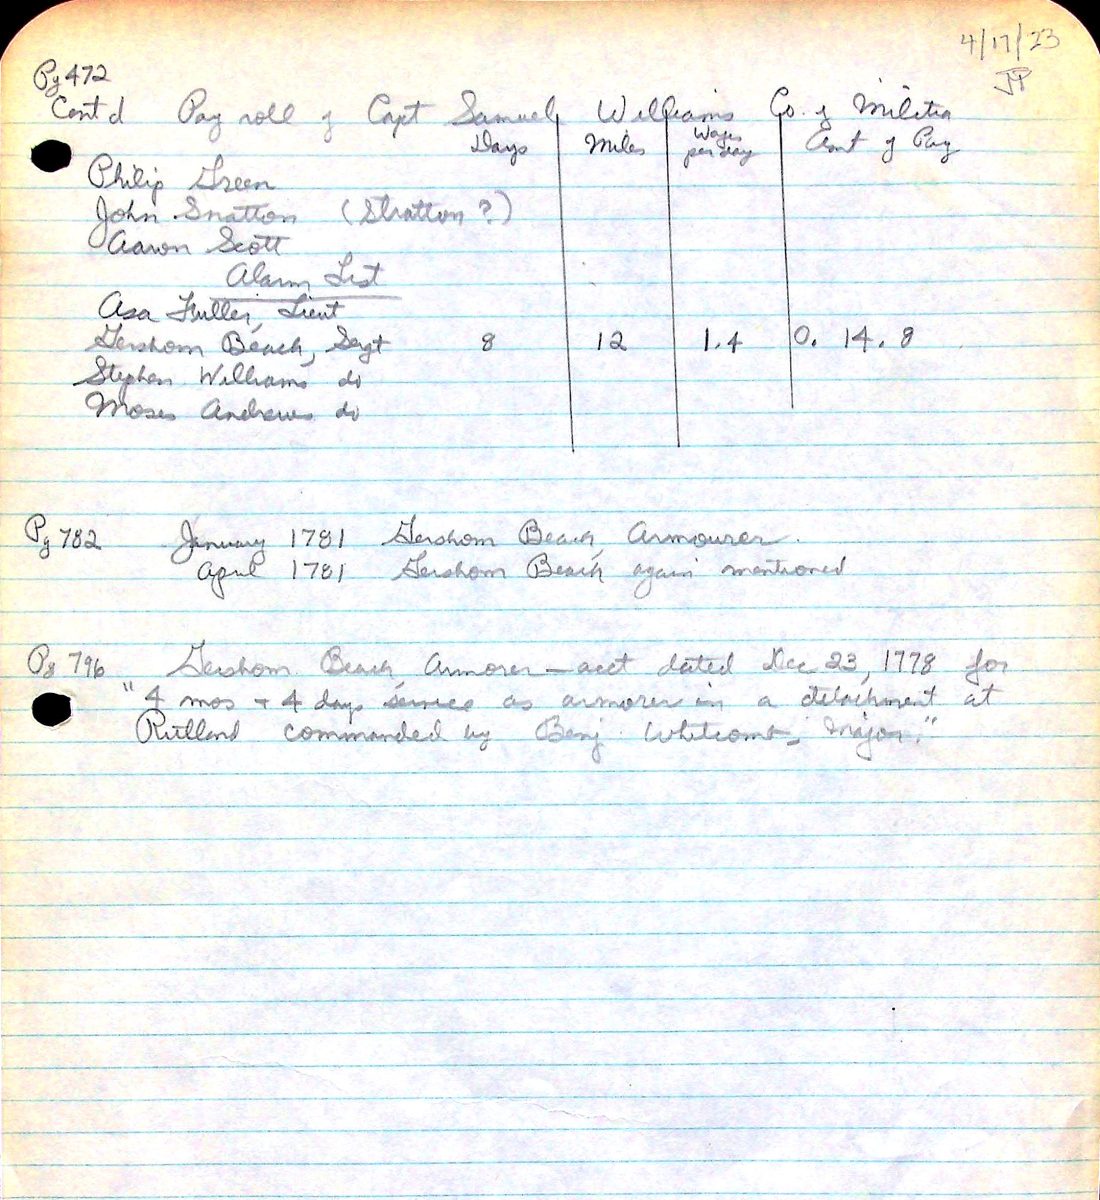 4/17/23
JP
Pg 472
Cont'd Pay roll of Capt Samuel Williams Co. of Militia
Days Miles Wages per day Amt of Pay
Philip Green
John Snatton (Stratton?)
Aaron Scott
Alarm List
Asa Fuller, Lieut
Gershom Beach, Sergt 8 12 1.4 0. 14. 8
Stephen Williams do
Moses Andrews do
Pg 782 January 1781 Gershom Beach, Armourer.
April 1781 Gershom Beach again mentioned
Pg 796 Gershom Beach, Armorer - acct dated Dec 23, 1778 for
"4 mos + 4 days service as armorer in a detachment at
Rutland commanded by Benj. Whitcomb, Major."